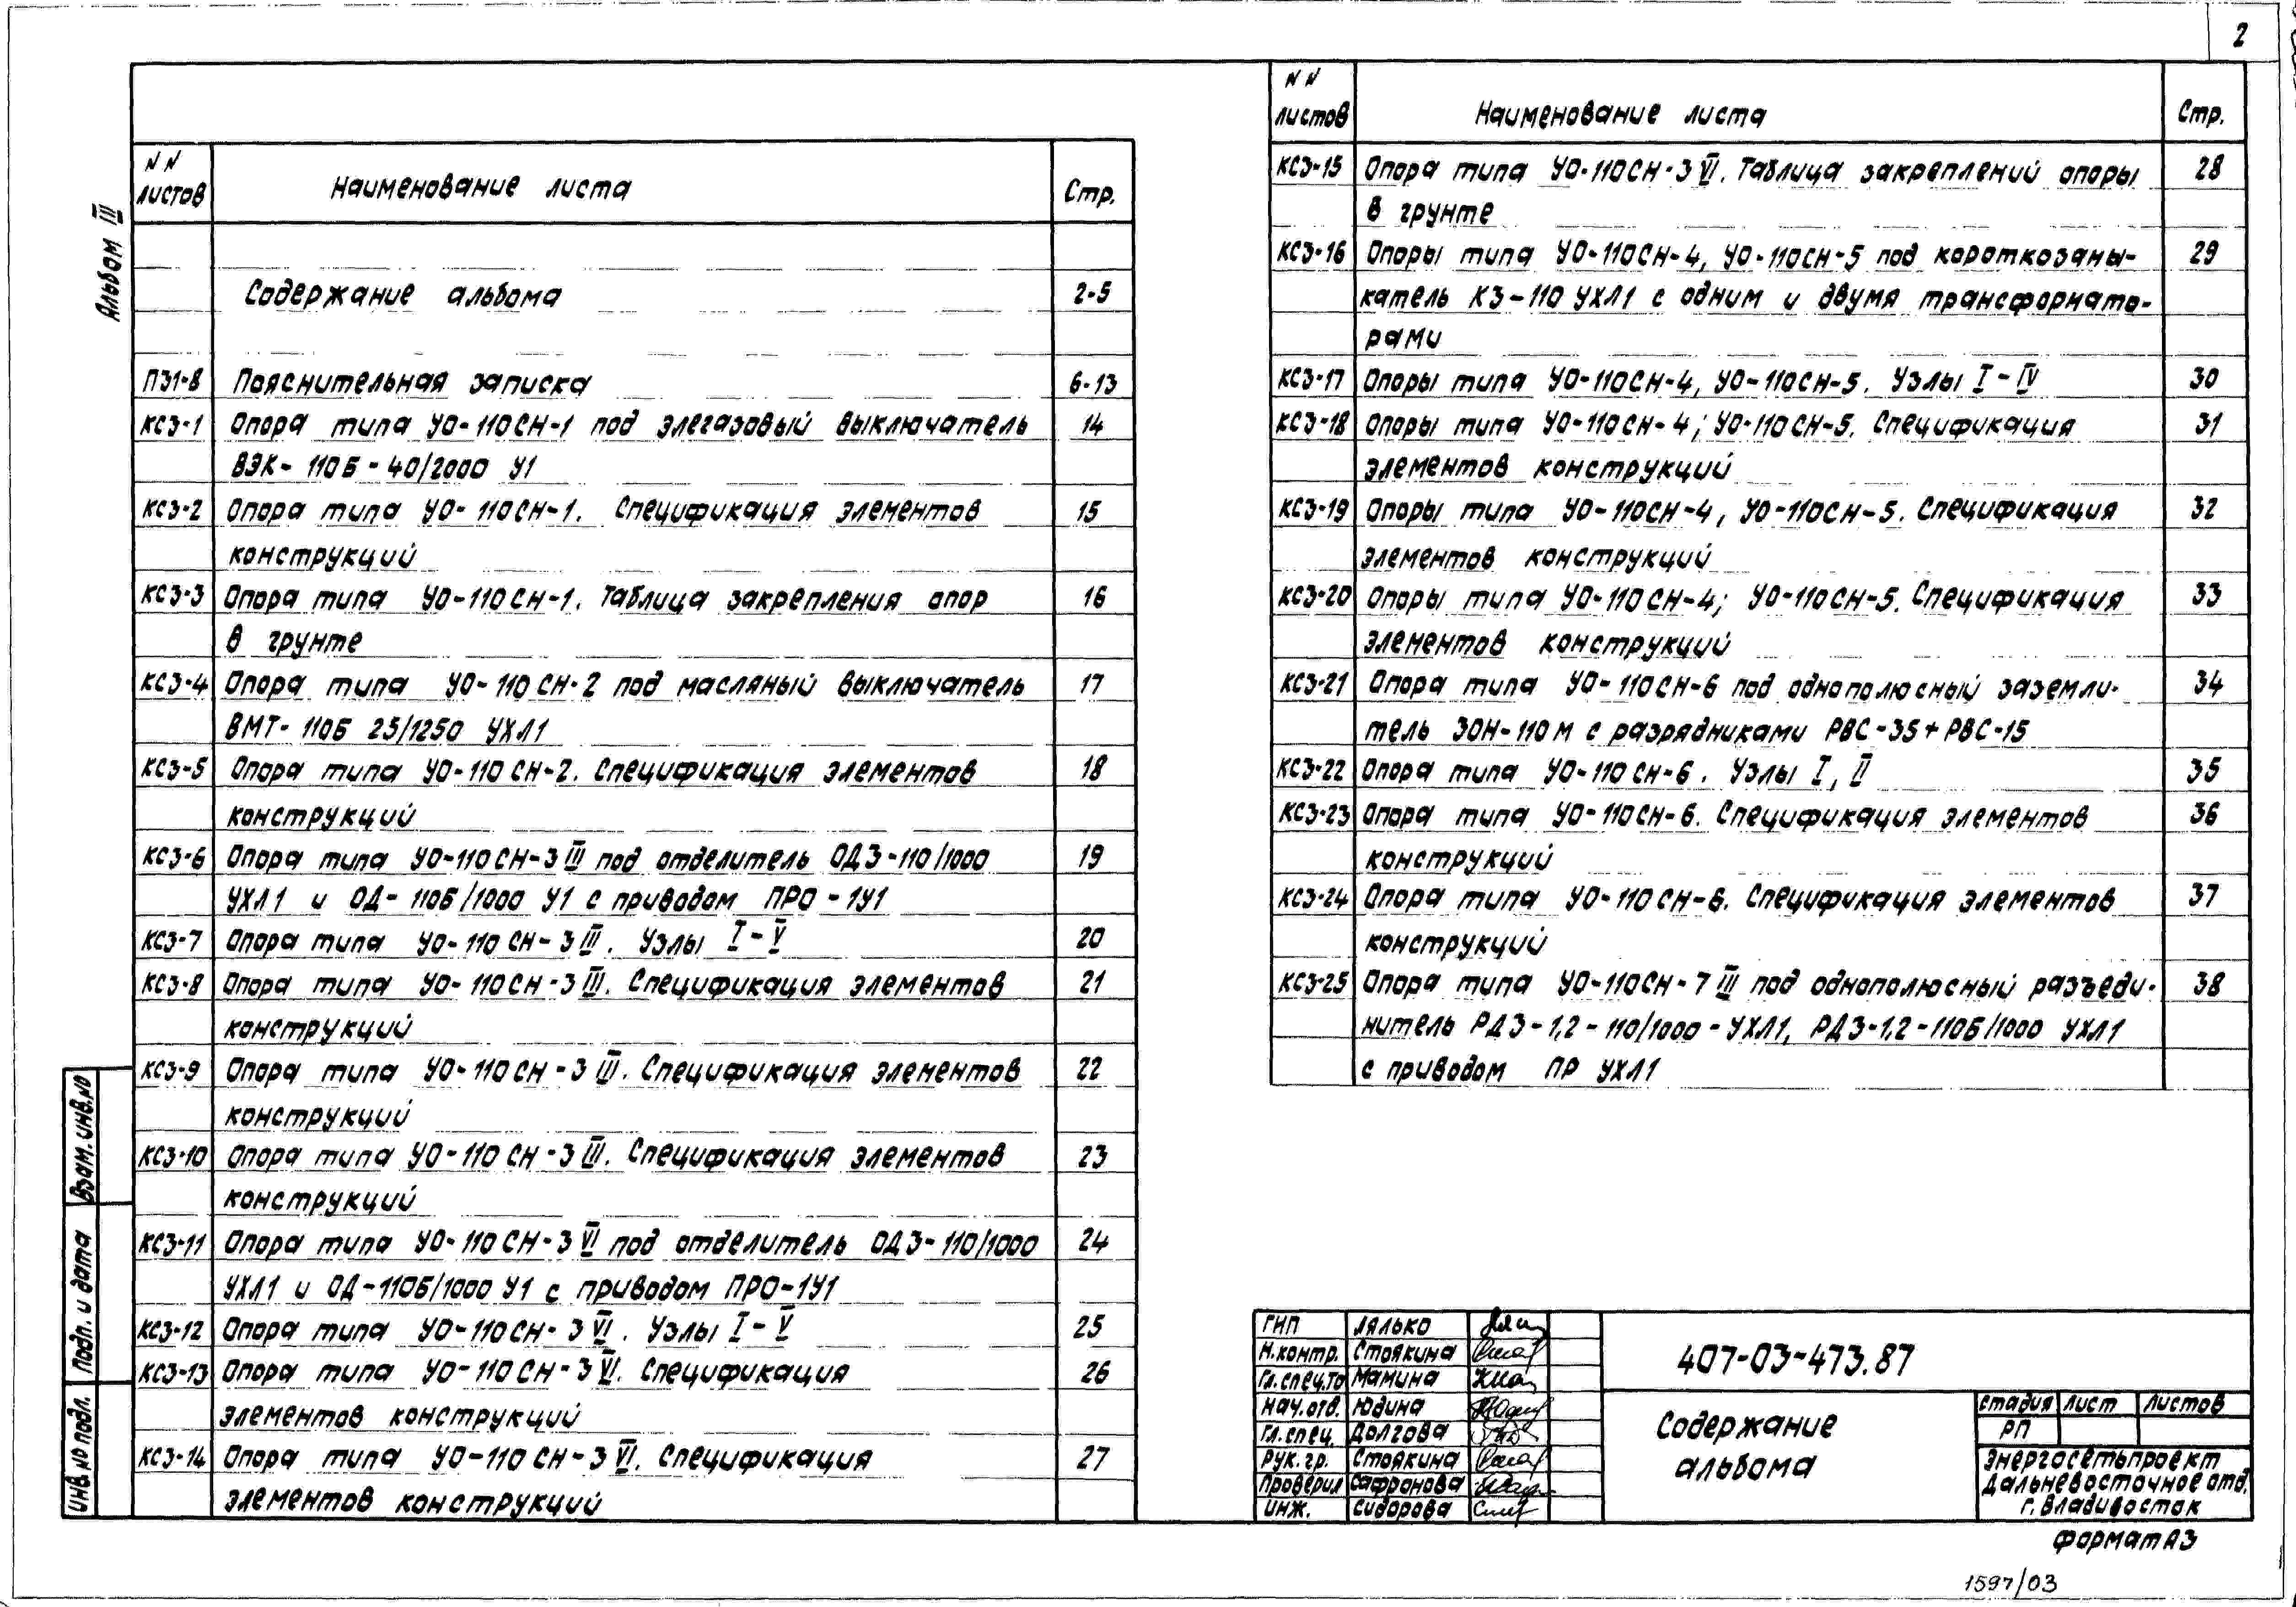 2
Альбом III
NN листов Наименование листа Стр.
Содержание альбома 2-5
ПЗ1-8 Пояснительная записка 6-13
КС3-1 Опора типа УО-110СН-1 под элегазовый выключатель 14
ВЭК-110Б-40/2000 У1
КС3-2 Опора типа УО-110СН-1. Спецификация элементов 15
конструкций
КС3-3 Опора типа УО-110СН-1. Таблица закрепления опор 16
в грунте
КС3-4 Опора типа УО-110СН-2 под масляный выключатель 17
ВМТ-110Б 25/1250 УХЛ1
КС3-5 Опора типа УО-110СН-2. Спецификация элементов 18
конструкций
КС3-6 Опора типа УО-110СН-3III под отделитель ОДЗ-110/1000 19
УХЛ1 и ОД-110Б/1000 У1 с приводом ПРО-1У1
КС3-7 Опора типа УО-110СН-3III. Узлы I-V 20
КС3-8 Опора типа УО-110СН-3III. Спецификация элементов 21
конструкций
КС3-9 Опора типа УО-110СН-3III. Спецификация элементов 22
конструкций
КС3-10 Опора типа УО-110СН-3III. Спецификация элементов 23
конструкций
КС3-11 Опора типа УО-110СН-3VI под отделитель ОДЗ-110/1000 24
УХЛ1 и ОД-110Б/1000 У1 с приводом ПРО-1У1
КС3-12 Опора типа УО-110СН-3VI. Узлы I-V 25
КС3-13 Опора типа УО-110СН-3VI. Спецификация 26
элементов конструкций
КС3-14 Опора типа УО-110СН-3VI. Спецификация 27
элементов конструкций
NN листов Наименование листа Стр.
КС3-15 Опора типа УО-110СН-3VI. Таблица закреплений опоры 28
в грунте
КС3-16 Опоры типа УО-110СН-4, УО-110СН-5 под короткозамы- 29
катель КЗ-110 УХЛ1 с одним и двумя трансформато-
рами
КС3-17 Опоры типа УО-110СН-4, УО-110СН-5. Узлы I-IV 30
КС3-18 Опоры типа УО-110СН-4; УО-110СН-5. Спецификация 31
элементов конструкций
КС3-19 Опоры типа УО-110СН-4, УО-110СН-5. Спецификация 32
элементов конструкций
КС3-20 Опоры типа УО-110СН-4; УО-110СН-5. Спецификация 33
элементов конструкций
КС3-21 Опора типа УО-110СН-6 под однополюсный заземли- 34
тель ЗОН-110М с разрядниками РВС-35+РВС-15
КС3-22 Опора типа УО-110СН-6. Узлы I, II 35
КС3-23 Опора типа УО-110СН-6. Спецификация элементов 36
конструкций
КС3-24 Опора типа УО-110СН-6. Спецификация элементов 37
конструкций
КС3-25 Опора типа УО-110СН-7III под однополюсный разъеди- 38
нитель РДЗ-1,2-110/1000-УХЛ1, РДЗ-1,2-110Б/1000 УХЛ1
с приводом ПР УХЛ1
Взам. инв. №
Подп. и дата
Инв. № подл.
ГИП Лялько
Н.контр. Стоякина
Гл.спец.ТО Мамина
Нач.отв. Юдина
Гл.спец. Долгова
Рук.гр. Стоякина
Проверил Сафронова
Инж. Сидорова
407-03-473.87
Содержание
альбома
Стадия Лист Листов
РП
Энергосетьпроект
Дальневосточное отд.
г. Владивосток
Формат А3
1597/03